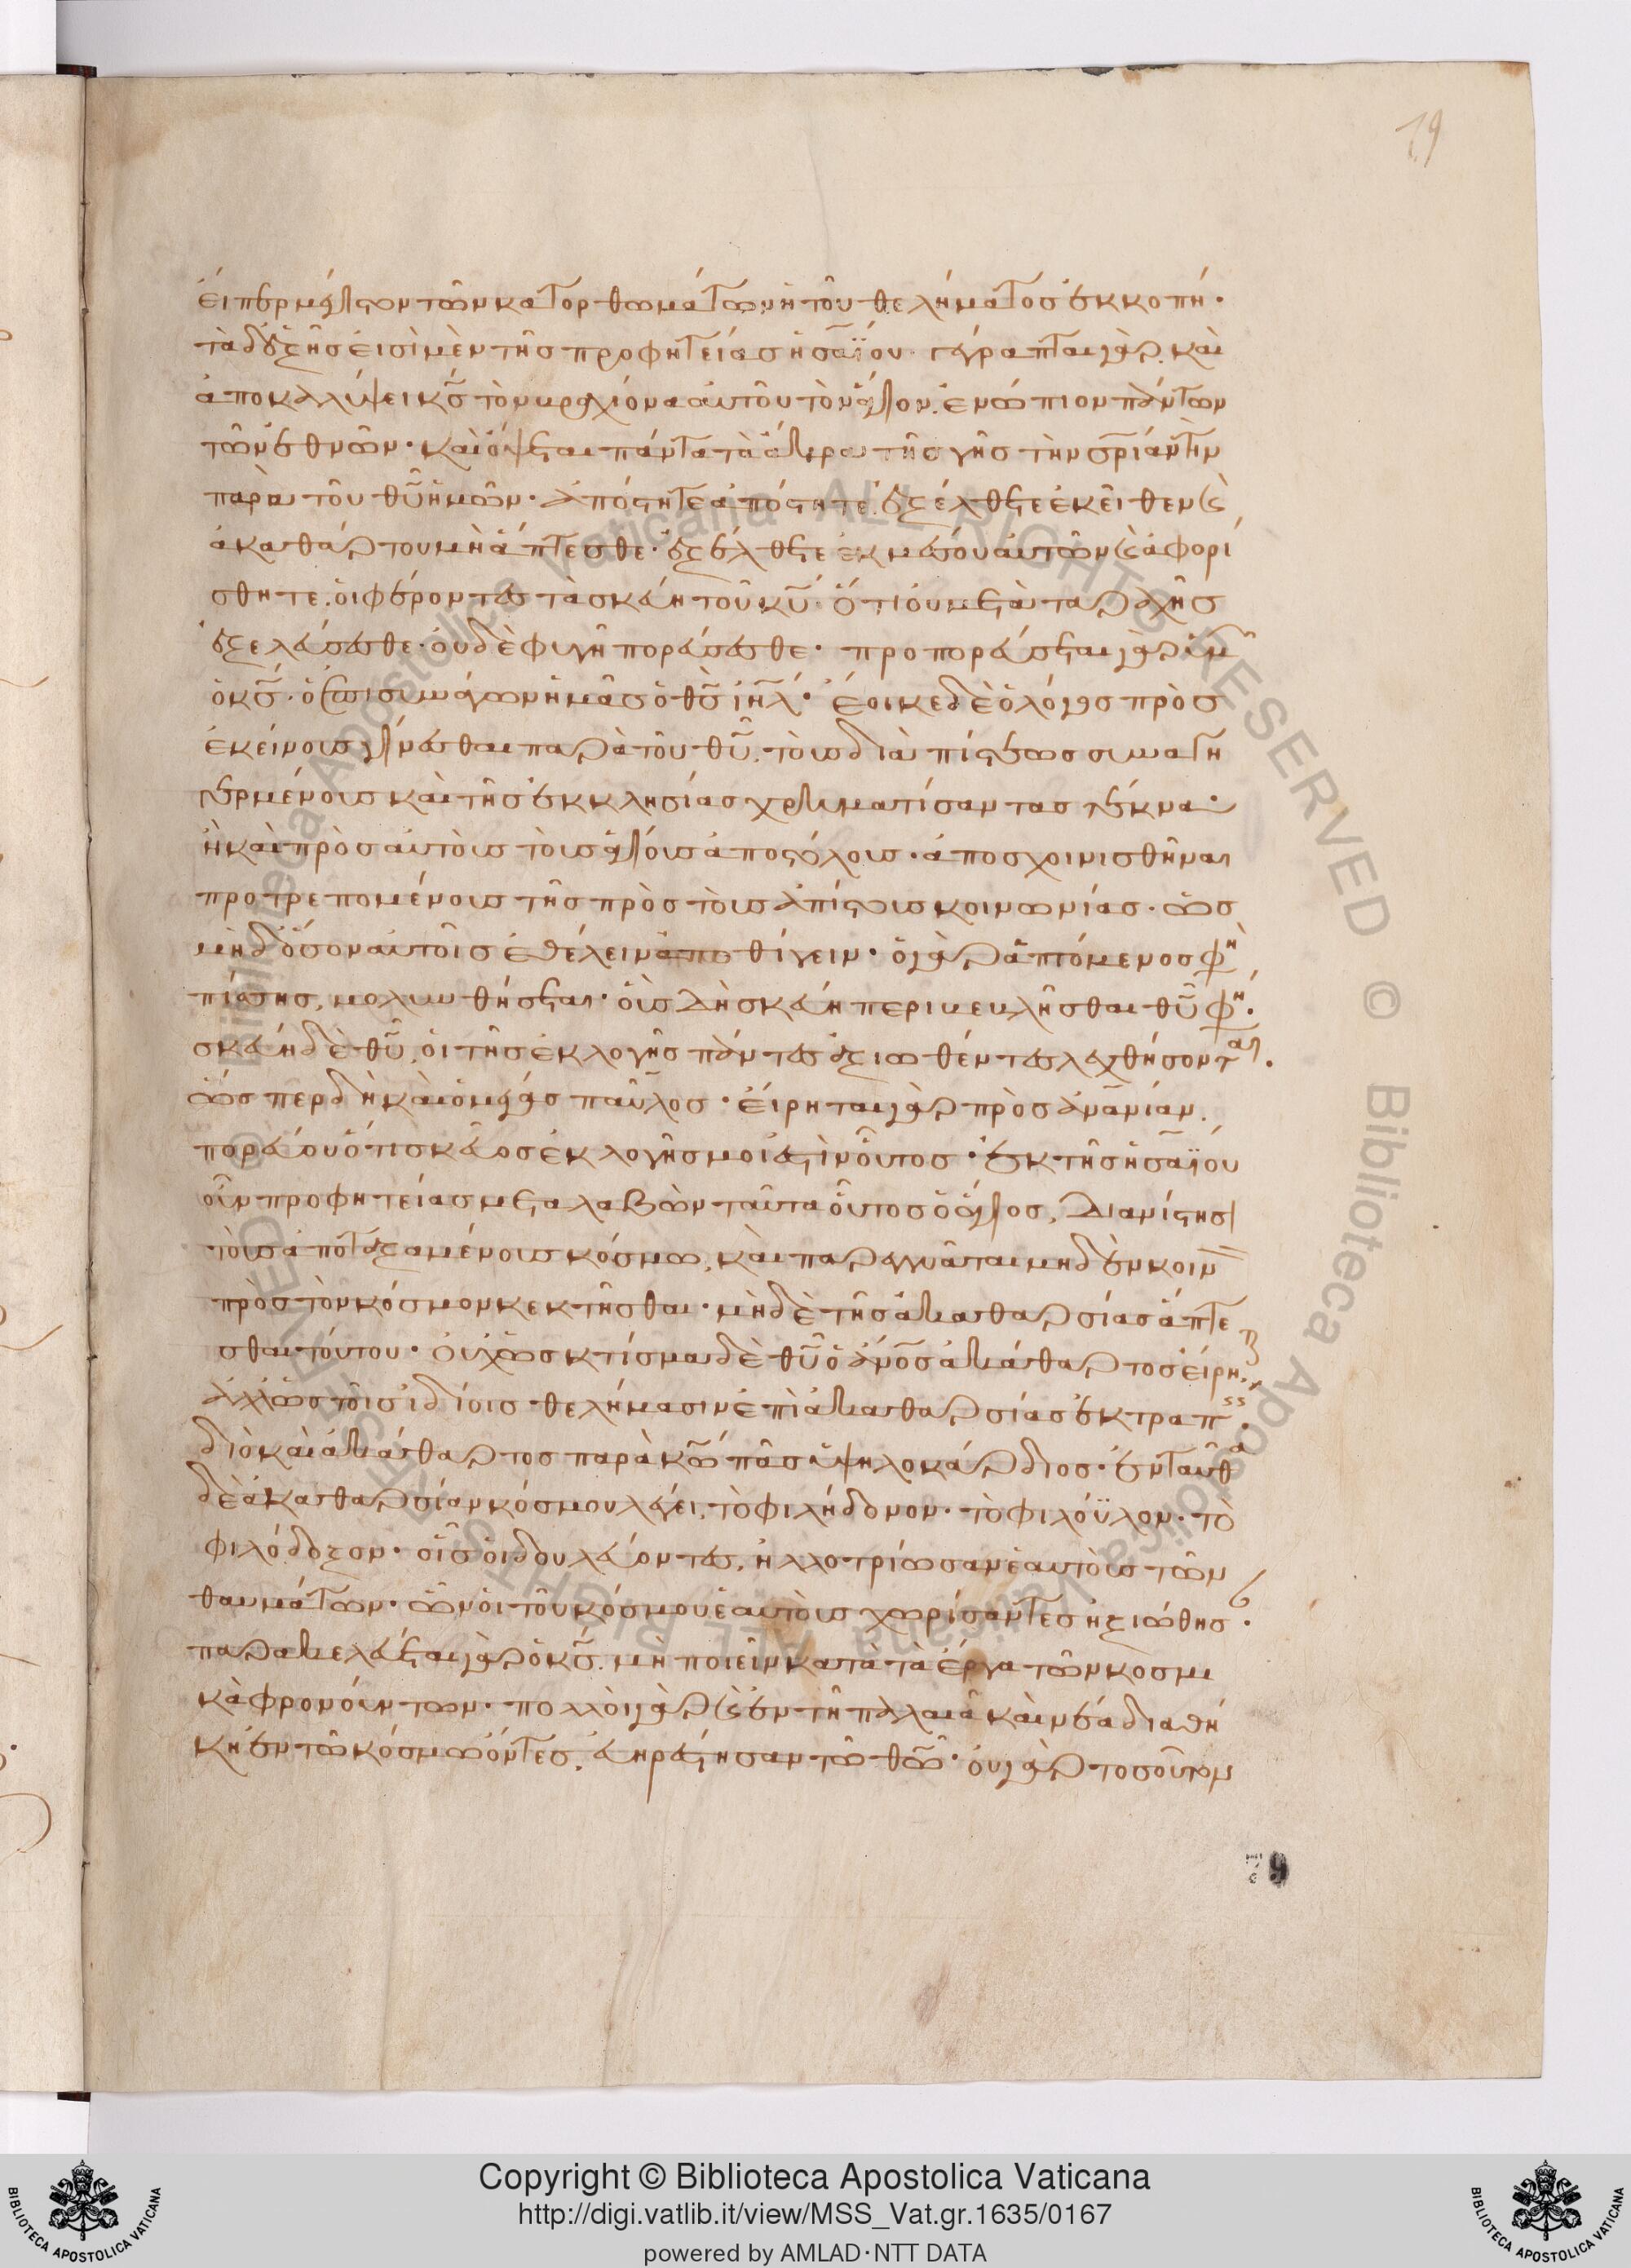 79
εἴπερ μέγιστον τῶν κατορθωμάτων ἡ τοῦ θελήματος ἐκκοπή·
τὰ δ' ἑξῆς εἰσὶ μὲν τῆς προφητείας ἡσαΐου· γέγραπται γάρ· καὶ
ἀποκαλύψει κς τὸν βραχίονα αὐτοῦ τὸν ἅγιον ἐνώπιον πάντων
τῶν ἐθνῶν· καὶ ὄψεται πάντα τὰ ἄκρα τῆς γῆς τὴν σριάν τὴν
παρὰ τοῦ θυ ἡμῶν· ἀπόστητε ἀπόστητε ἐξέλθετε ἐκεῖθεν καὶ
ἀκαθάρτου μὴ ἅπτεσθε· ἐξέλθετε ἐκ μέσου αὐτῶν καὶ ἀφορί
σθητε οἱ φέροντες τὰ σκεύη τοῦ κυ· ὅτι οὐ μετὰ ταραχῆς
ἐξελεύσεσθε· οὐδὲ φυγῇ πορεύσεσθε· προπορεύσεται γὰρ ὑμῶν
ὁ κς· ὁ ἐπισυνάγων ἡμᾶς ὁ θς ιηλ· ἔοικε δὲ ὁ λόγος πρὸς
ἐκείνους γίνεσθαι παρὰ τοῦ θυ τοὺς διὰ πίστεως συναγη
γερμένους καὶ τῆς ἐκκλησίας χρηματίσαντας τέκνα·
ἢ καὶ πρὸς αὐτοὺς τοὺς ἁγίους ἀποστόλους· ἀποσχοινισθῆναι
προτρεπομένους τῆς πρὸς τοὺς ἀπίστους κοινωνίας· ὡς
μὴδ' ὅσον αὐτοῖς ἐθέλειν ἀποθίγειν· ὁ γὰρ ἁπτόμενος φη
πίσσης, μολυνθήσεται· οὓς δὴ σκεύη περικεκλῆσθαι θυ φη·
σκεύη δὲ θυ οἱ τῆς ἐκλογῆς πάντες ἀξιωθέντες λεχθήσονται·
ὥσπερ δὴ καὶ ὁ μέγας παῦλος· εἴρηται γὰρ πρὸς ἀνανίαν
πορεύου ὅτι σκεῦος ἐκλογῆς μοι ἐστὶν οὗτος· ἐκ τῆς ἡσαΐου
οὖν προφητείας μεταλαβὼν ταῦτα οὗτος ὁ ἅγιος, διανίστησι
τοὺς ἀποταξαμένους κόσμω, καὶ παρεγγυᾶται μηδὲν κοινὸν
πρὸς τὸν κόσμον κεκτῆσθαι· μηδὲ τῆς ἀκαθαρσίας ἅπτε
σθαι τούτου· οὐχ ὡς κτίσμα δὲ θυ ὁ ἀνος ἀκάθαρτος εἴρηται
ἀλλ' ὡς τοῖς ἰδίοις θελήμασιν ἐπὶ ἀκαθαρσίας ἐκτραπείς·
διὸ καὶ ἀκάθαρτος παρὰ κω πᾶς ὑψηλοκάρδιος· ἐνταῦθα
δὲ ἀκαθαρσίαν κόσμου λέγει, τὸ φιλήδονον· τὸ φιλόϋλον· τὸ
φιλόδοξον· οἷς οἱ δουλεύοντες, ἠλλοτρίωσαν ἑαυτοὺς τῶν
θαυμάτων· ὧν οἱ τοῦ κόσμου ἑαυτοὺς χωρίσαντες ἠξιώθησαν·
παρακελεύεται γὰρ ὁ κς μὴ ποιεῖν κατὰ τὰ ἔργα τῶν κοσμι
κὰ φρονούντων· πολλοὶ γὰρ καὶ ἐν τῇ παλαιᾷ καὶ νέα διαθή
κῃ ἐν τῶ κόσμω ὄντες, εὐηρέστησαν τῶ θω· οὐ γὰρ τοσοῦτον
79
Copyright © Biblioteca Apostolica Vaticana
http://digi.vatlib.it/view/MSS_Vat.gr.1635/0167
powered by AMLAD·NTT DATA